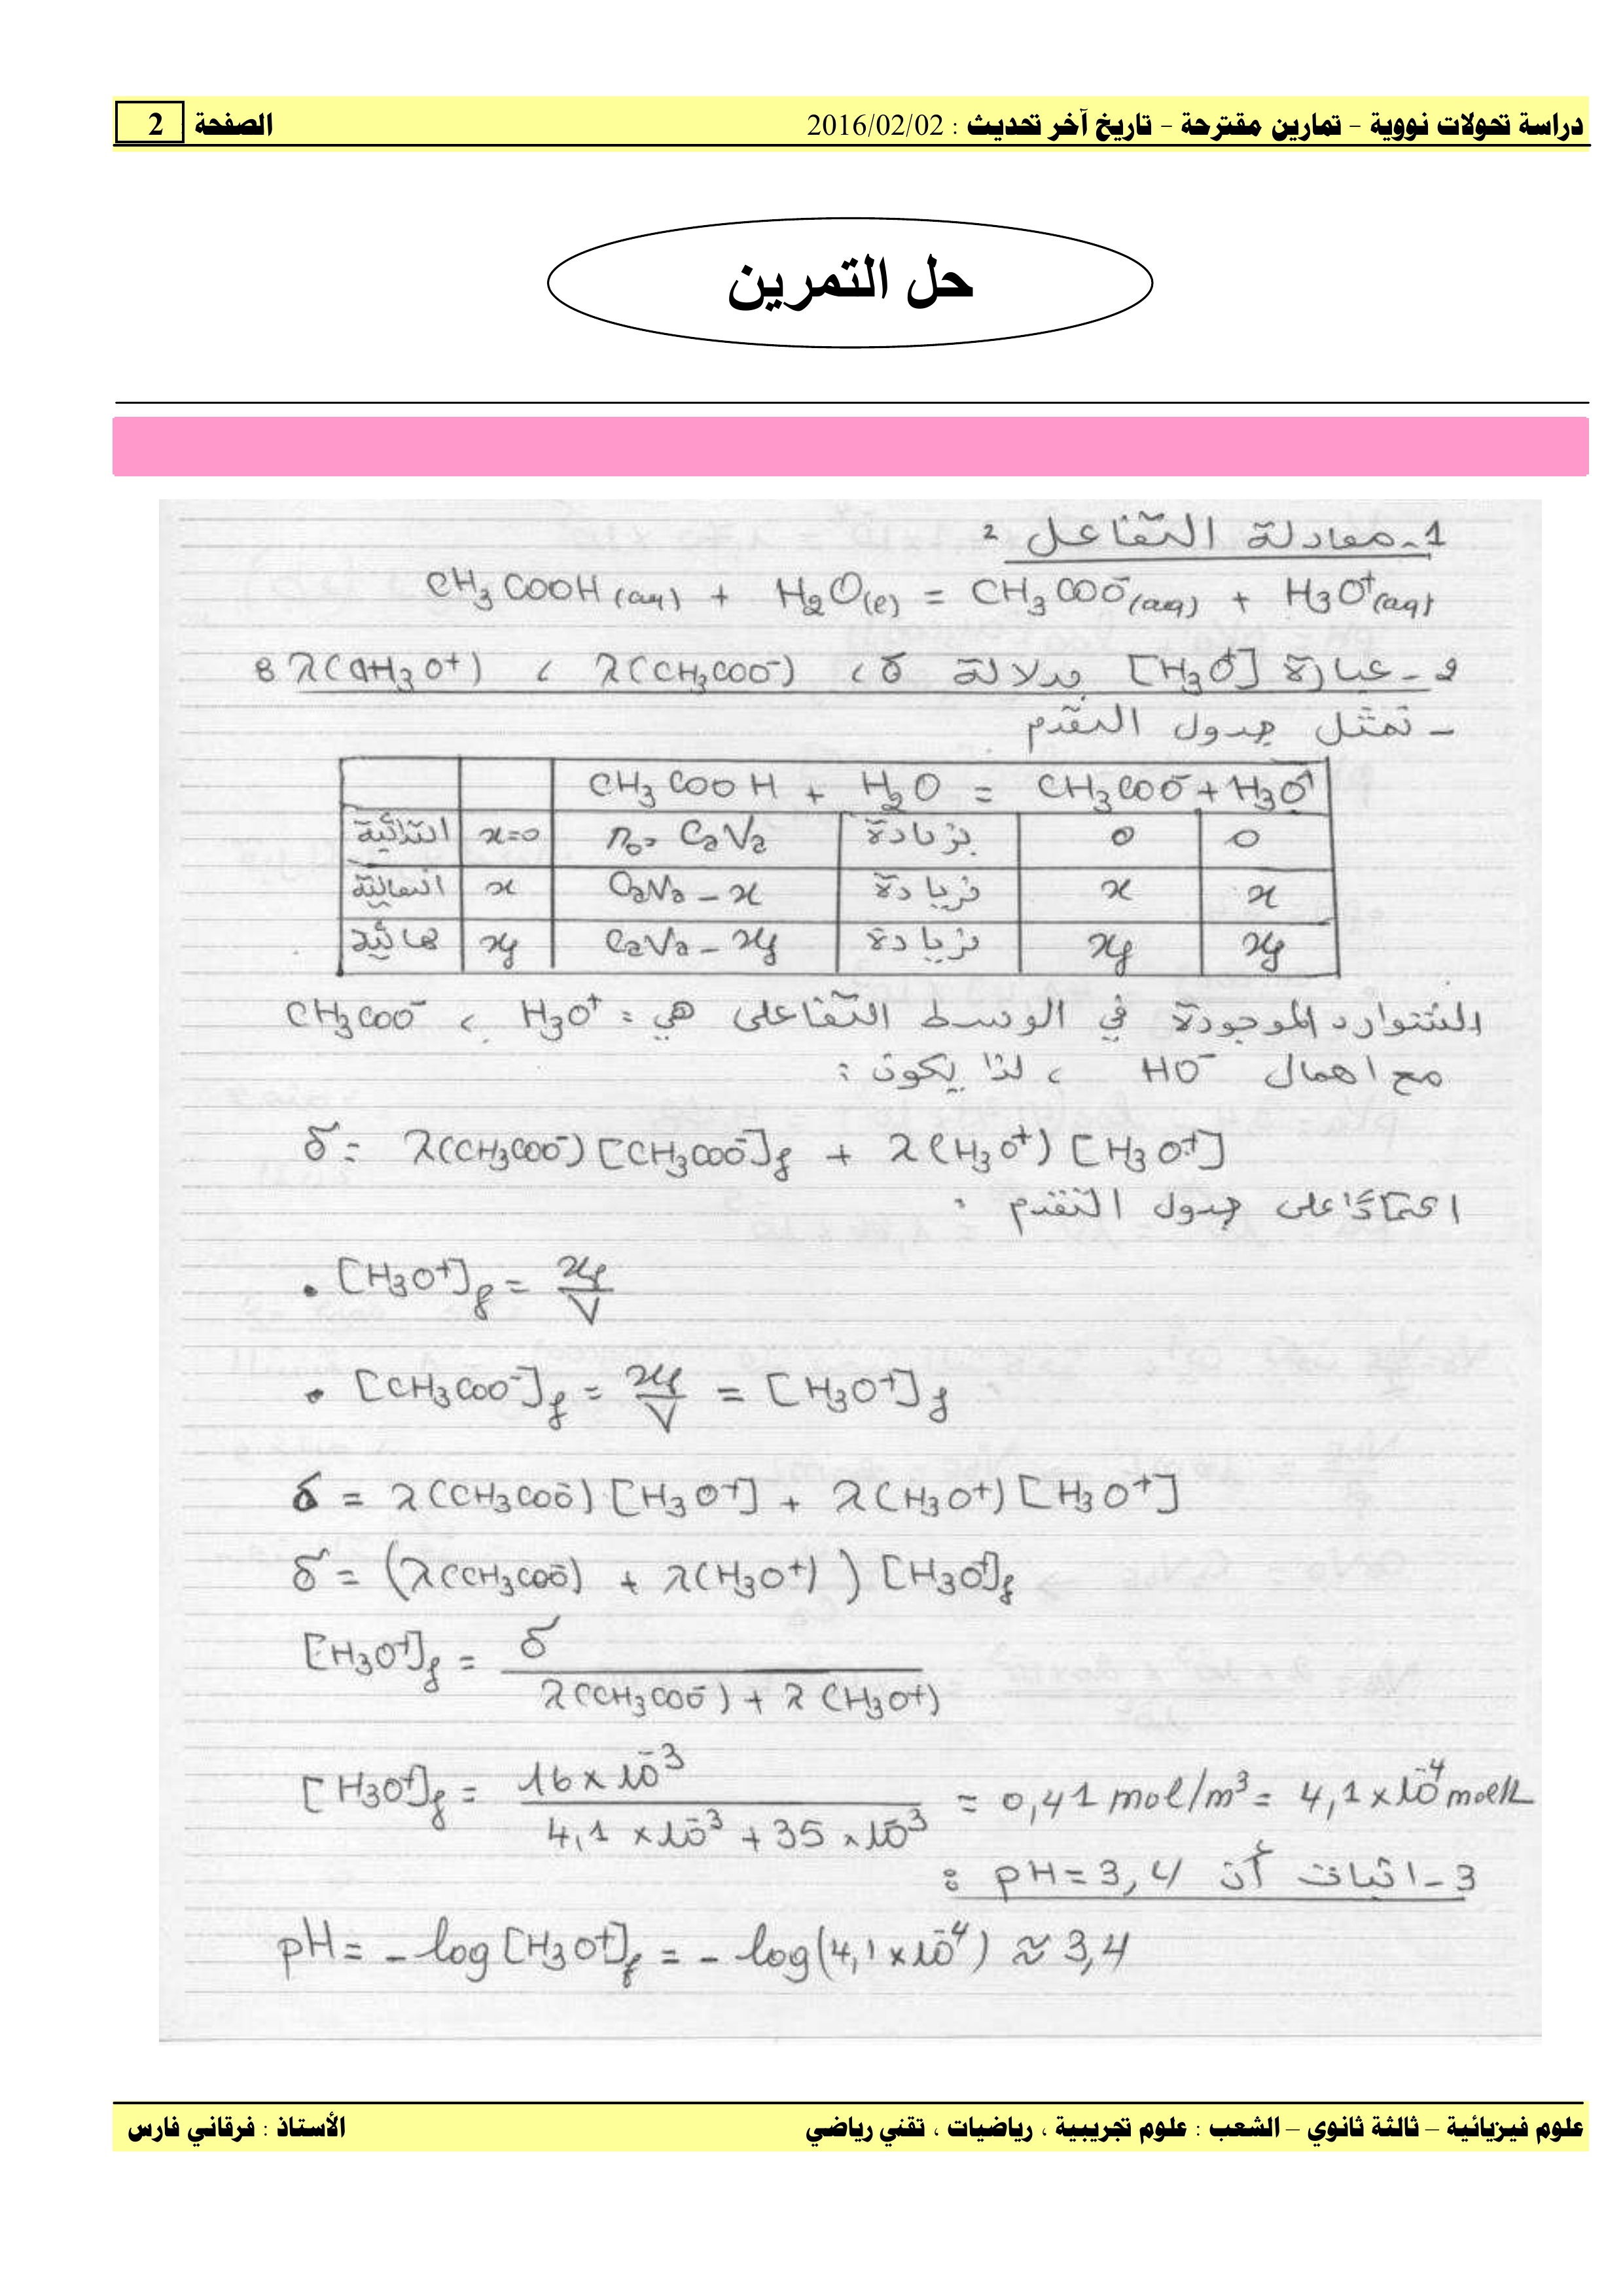 دراسة تحولات نووية – تمارين مقترحة – تاريخ آخر تحديث : 2016/02/02 الصفحة 2
حل التمرين
1- معادلة التفاعل :
CH₃COOH(aq) + H₂O(l) = CH₃COO⁻(aq) + H₃O⁺(aq)
2- عبارة [H₃O⁺] بدلالة σ ، λ(CH₃COO⁻) ، λ(H₃O⁺) :
- نمثل جدول التقدم
CH₃COOH + H₂O = CH₃COO⁻ + H₃O⁺
x=0 n₀= CaVa بزيادة 0 0
x CaVa - x بزيادة x x
xf CaVa - xf بزيادة xf xf
الشوارد الموجودة في الوسط التفاعلي هي : H₃O⁺ ، CH₃COO⁻
مع اهمال HO⁻ ، لذا يكون :
σ = λ(CH₃COO⁻)[CH₃COO⁻]f + λ(H₃O⁺)[H₃O⁺]
اعتمادًا على جدول التقدم :
• [H₃O⁺]f = xf/V
• [CH₃COO⁻]f = xf/V = [H₃O⁺]f
σ = λ(CH₃COO⁻)[H₃O⁺] + λ(H₃O⁺)[H₃O⁺]
σ = (λ(CH₃COO⁻) + λ(H₃O⁺))[H₃O⁺]f
[H₃O⁺]f = σ / λ(CH₃COO⁻) + λ(H₃O⁺)
[H₃O⁺]f = 16×10⁻³ / 4,1×10⁻³ + 35×10⁻³ = 0,41 mol/m³ = 4,1×10⁻⁴ mol/L
3- اثبات أن pH = 3,4 :
pH = -log[H₃O⁺]f = -log(4,1×10⁻⁴) ≈ 3,4
علوم فيزيائية – ثالثة ثانوي – الشعب : علوم تجريبية ، رياضيات ، تقني رياضي الأستاذ : فرقاني فارس